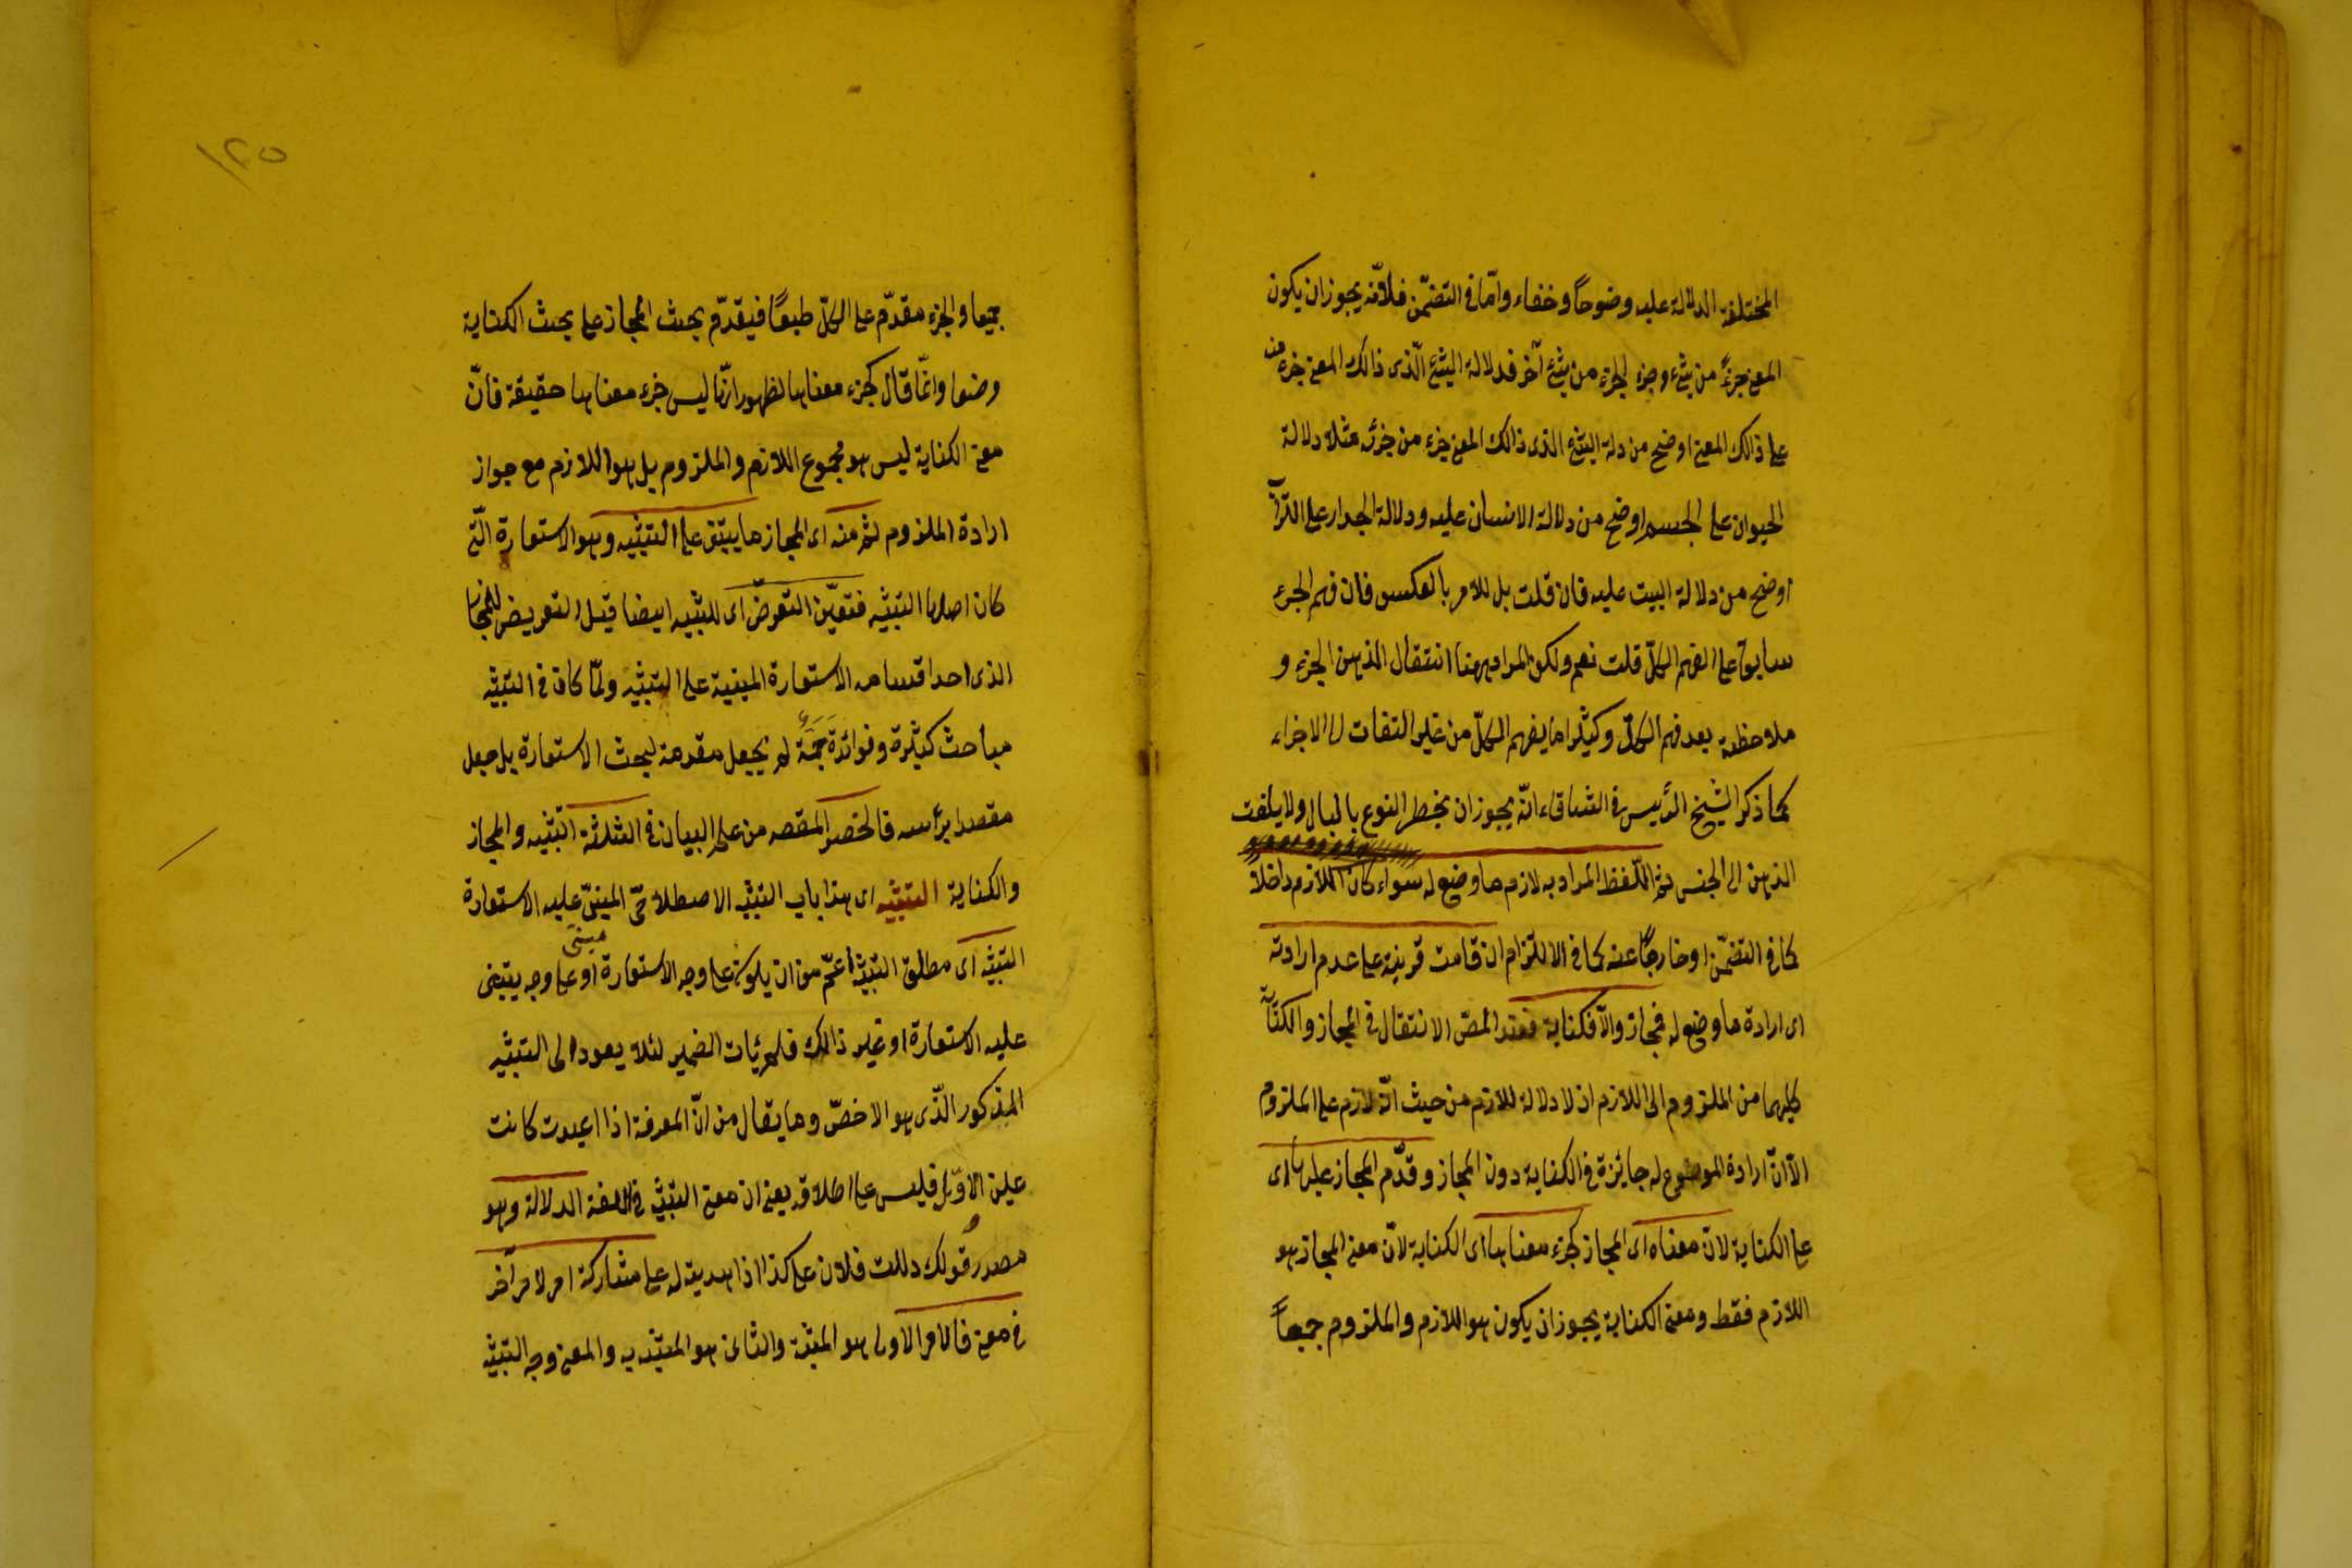 المختلفة الدلالة عليه وضوحاً وخفاء وامّا في التضمّن فلانّه يجوز ان يكون
المعنى جزءً من شئ وجزء الجزء من شئ آخر فدلالة الشئ الّذى ذالك المعنى جزء منه
على ذالك المعنى اوضح من دلة الشئ الذى ذالك المعنى جزء من جزئه مثلا دلالة
الحيوان على الجسم اوضح من دلالة الانسان عليه ودلالة الجدار على التراب
اوضح من دلالة البيت عليه فان قلت بل للامر بالعكس فان فهم الجزء
سابق على الفهم الكلّ قلت نعم ولكن المراد ههنا انتقال الذهن الجزء و
ملاحظته بعد فهم الكلّ وكثيرا ما يفهم الكلّ من غير التفات الى الاجزاء
كما ذكر الشيخ الرّئيس في الشفاء انّه يجوز ان يخطر النوع بالبال ولا يلتفت
الذهن الى الجنس ثم اللّفظ المراد به لازم ما وضع له سواء كان اللازم داخلاً
كما في التضمّن او خارجاً عنه كما في الالتزام ان قامت قرينة على عدم ارادته
اى ارادة ما وضع له فمجاز والّا فكناية فعند المصّ الانتقال في المجاز والكناية
كليهما من الملزوم الى اللازم اذ لا دلالة للازم من حيث انّه لازم على الملزوم
الّا انّ ارادة الموضوع له جايزة في الكناية دون المجاز وقدّم المجاز عليها اى
على الكناية لانّ معناه اى المجاز كجزء معناها اى الكناية لانّ معنى المجاز هو
اللازم فقط ومعنى الكناية يجوز ان يكون هو اللازم والملزوم جميعاً
١٢٥
جميعا والجزء مقدّم على الكلّ طبعًا فيقدّم بحث المجاز على بحث الكناية
وضعا وانّما قال كجزء معناها لظهور انّه ليس جزء معناها حقيقة فانّ
معنى الكناية ليس هو مجموع اللازم والملزوم بل هو اللازم مع جواز
ارادة الملزوم ثم منه اى المجاز ما يبتنى على التشبيه وهو الاستعارة الّتى
كان اصلها التشبيه فتعيّن التعرّض اى للتشبيه ايضا قبل التعريض للمجاز
الذى احد اقسامه الاستعارة المبنية على التشبيه ولمّا كان في التشبيه
مباحث كثيرة وفوائدة جمّة لم يجعل مقدمة لبحث الاستعارة بل جعل
مقصدا برأسه فانحصر المقصد من علم البيان في الثلثة التشبيه والمجاز
والكناية التشبيه اى هذا باب التشبيه الاصطلاحىّ المبنىّ عليه الاستعارة
التشبيه اى مطلق التشبيه اعمّ من ان يكون على وجه الاستعارة او على وجه يبتنى
عليه الاستعارة او غير ذالك فلم يئات الضمير لئلا يعود الى التشبيه
المذكور الّذى هو الاخصّ وما يقال من انّ المعرفة اذا اعيدت كانت
عين الاوّل فليس على اطلاقه يعنى ان معنى التشبيه في اللغة الدلالة وهو
مصدر قولك دللت فلان على كذا اذا هديته له على مشاركة امر لامر آخر
في معنى فالامر الاول هو المشبّه والثانى هو المشبّه به والمعنى وجه التشبيه